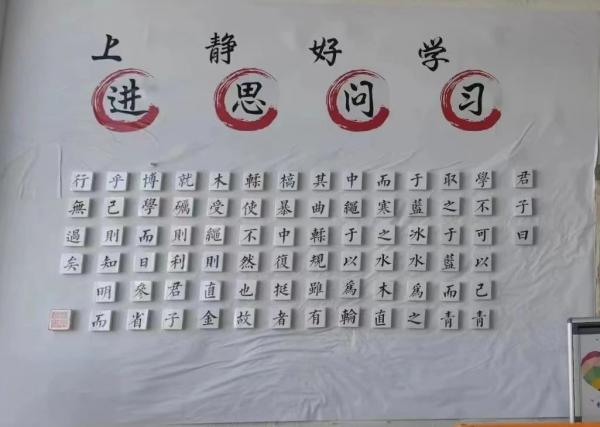 上进
静思
好问
学习
君子曰
學不可以已青
取之于藍而青
于藍冰水爲之
而寒之水木直
中繩于以爲輪
其曲輮規雖有
槁暴中復挺者
輮使不然也故
木受繩則直金
就礪則利君子
博學而日參省
乎己則知明而
行無過矣